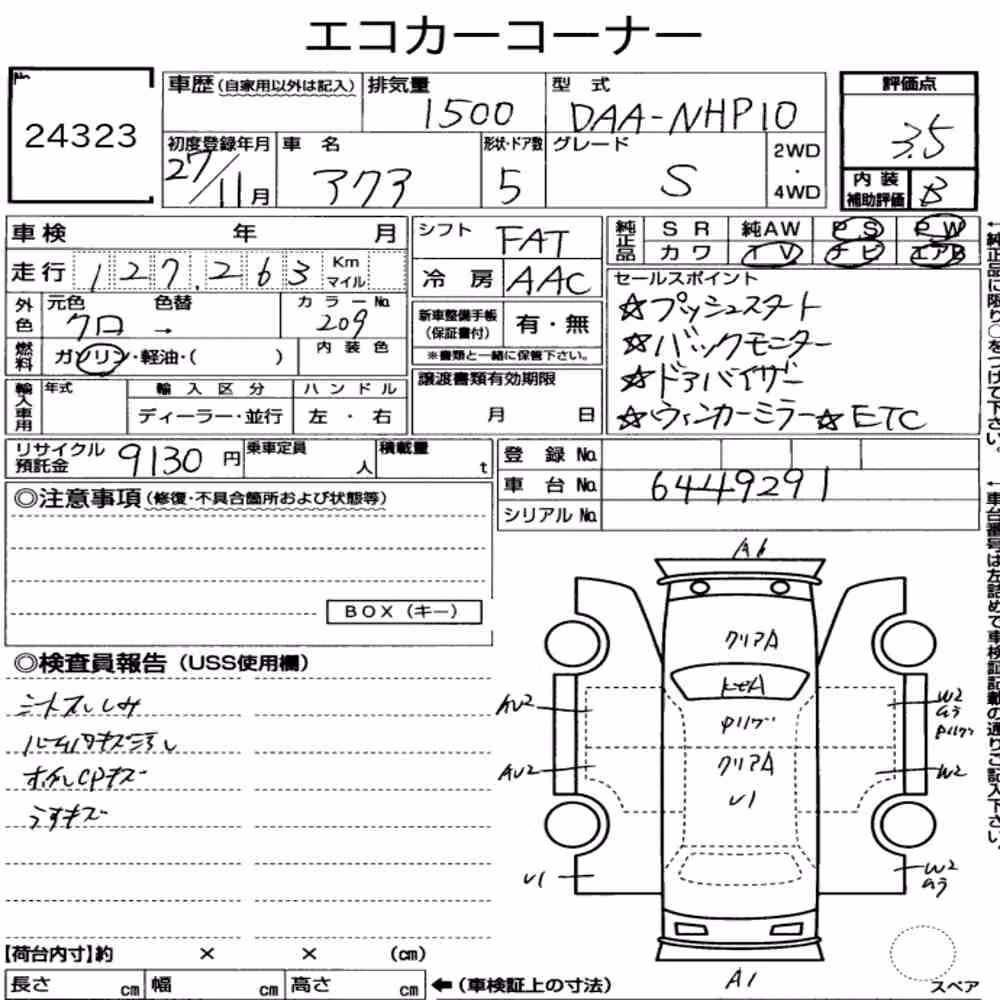 エコカーコーナー
No.
24323
車歴(自家用以外は記入)
排気量
1500
型 式
DAA-NHP10
評価点
3.5
初度登録年月
27/11月
車 名
アクア
形状・ドア数
5
グレード
S
2WD
・
4WD
内 装
補助評価
B
車検 年 月
走行 127,263 Km
マイル
シフト FAT
冷 房 AAC
純正品 S R 純AW P S P W
カワ T V ナビ エアB
外色 元色 色替 カラーNo.
クロ → 209
燃料 ガソリン・軽油・( )
内 装 色
新車整備手帳
(保証書付)
有・無
※書類と一緒に保管下さい。
セールスポイント
☆プッシュスタート
☆バックモニター
☆ドアバイザー
☆ウィンカーミラー☆ETC
輸入車用 年式 輸 入 区 分 ハ ン ド ル
ディーラー・並行 左 ・ 右
譲渡書類有効期限
月 日
リサイクル
預託金 9130 円
乗車定員
人
積載量
t
登 録 No.
車 台 No. 6449291
シリアル No.
←純正品に限り○をつけて下さい。
←車台番号は左詰めで車検証記載の通りご記入下さい。
◎注意事項(修復・不具合箇所および状態等)
BOX(キー)
◎検査員報告(USS使用欄)
シートスレしみ
ホイルCPキズ
うすキズ
A1
クリアA
AV2
W2
AV2
クリアA
W2
V1
V1
W2
A1
【荷台内寸】約 × × (cm)
長さ cm 幅 cm 高さ cm
←(車検証上の寸法)
スペア